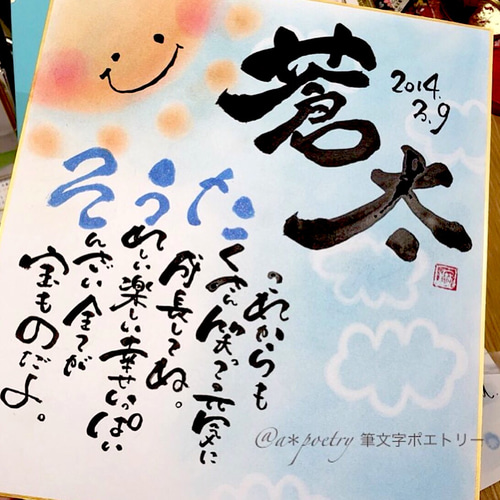 蒼太
2014.
3.9
これからも
たくさん笑って元気に
成長してね。
うれしい楽しい幸せいっぱい
そんざい全てが
宝ものだよ。
@a*poetry 筆文字ポエトリー